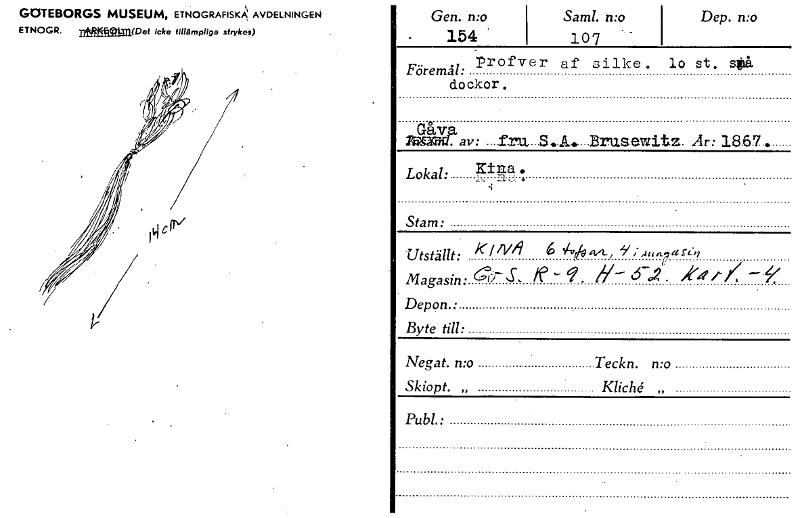 GÖTEBORGS MUSEUM, ETNOGRAFISKA AVDELNINGEN
ETNOGR. ARKEOLM (Det icke tillämpliga strykes)
14 cm
Gen. n:o Saml. n:o Dep. n:o
154 107
Föremål: Profver af silke. 10 st. små
dockor.
Gåva
av: fru S.A. Brusewitz År: 1867.
Lokal: Kina.
Stam:
Utställt: KINA 6 tofsar, 4 i magasin
Magasin: G-S. R-9. H-52. Kart.-4.
Depon.:
Byte till:
Negat. n:o Teckn. n:o
Skiopt. „ Kliché „
Publ.: